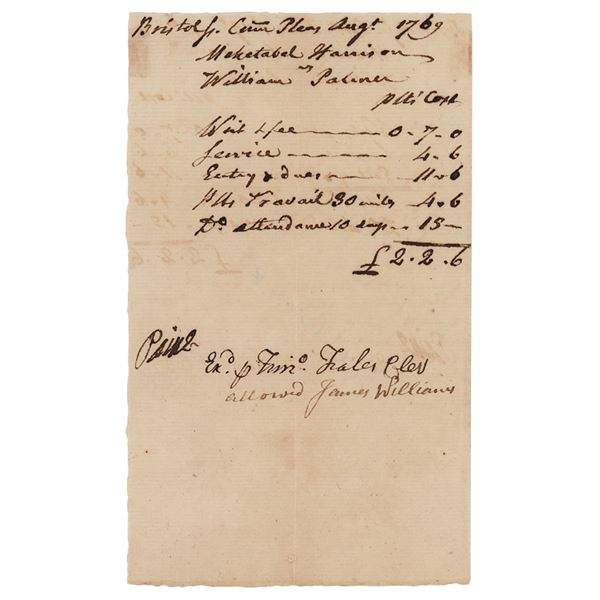 Bristol ss. Com Pleas Augt. 1769
Mehetabel Harrison
vs
William Palmer
plts Cost
Writ & fee 0-7-0
Service 4-6
Entry & dues 11-6
plts Travail 30 miles 4-6
Do. attendance 10 days 15-
£2.2.6
Paine
Exd. p Timo. Fales Cler
allowed James Williams